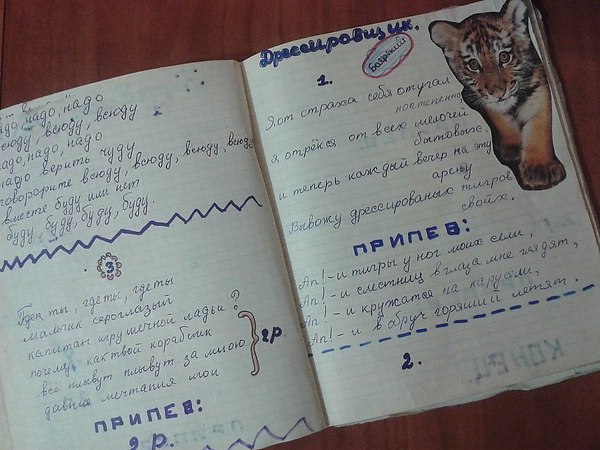 надо, надо, надо
всюду, всюду, всюду
надо, надо, надо
надо верить чуду
говорите всюду, всюду, всюду, всюду
вместе буду или нет
буду, буду, буду, буду.
3
Где ты, где ты, где ты
мальчик сероглазый
капитан игрушечной ладьи?
почему как твой кораблик
всё плывут плывут за мною
давние мечтания мои
2р.
ПРИПЕВ:
2р.
Дрессировщик.
1.
Я от страха себя отучал
постепенно,
я отрёкся от всех мелочей
бытовых.
и теперь каждый вечер на эту
арену
Вывожу дрессированых тигров
своих.
ПРИПЕВ:
Ап! - и тигры у ног моих сели,
Ап! - и с лестниц в глаза мне глядят,
Ап! - и кружатся на карусели,
Ап! - и в обруч горящий летят.
2.
КОНЕЦ